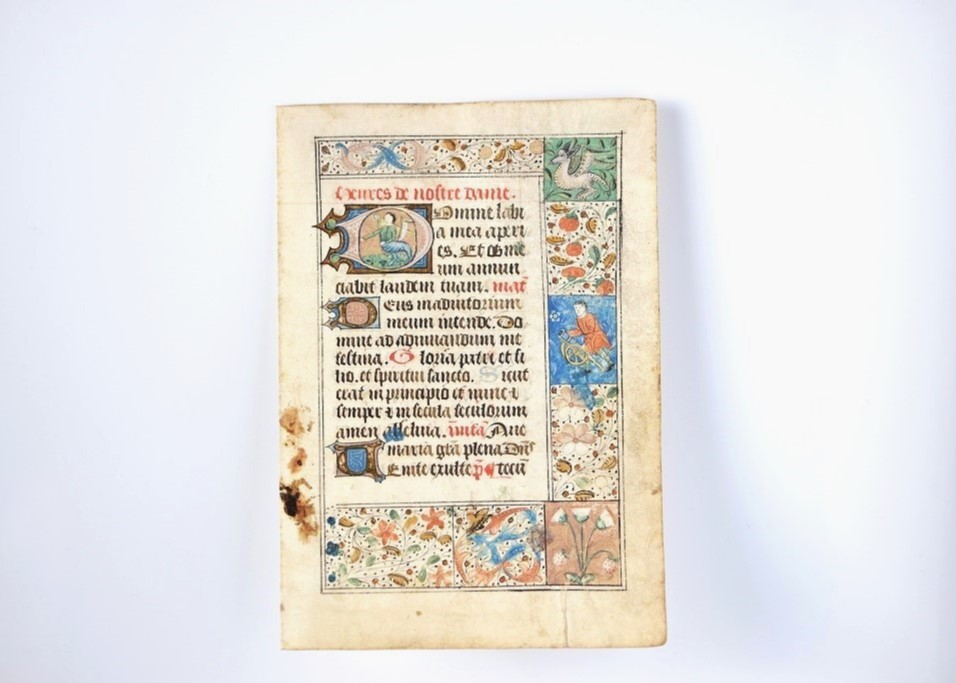 Heures de nostre dame.
Domine labi
a mea aperi
es. Et os me
um annun
ciabit laudem tuam. 
Deus in adiutorium
meum intende. Do
mine ad adiuuandum me
festina. Gloria patri et fi
lio. et spiritui sancto. Sicut
erat in principio et nunc et
semper et in secula seculorum
amen alleluia. Aue
maria grā plena Dn̄s
tecū